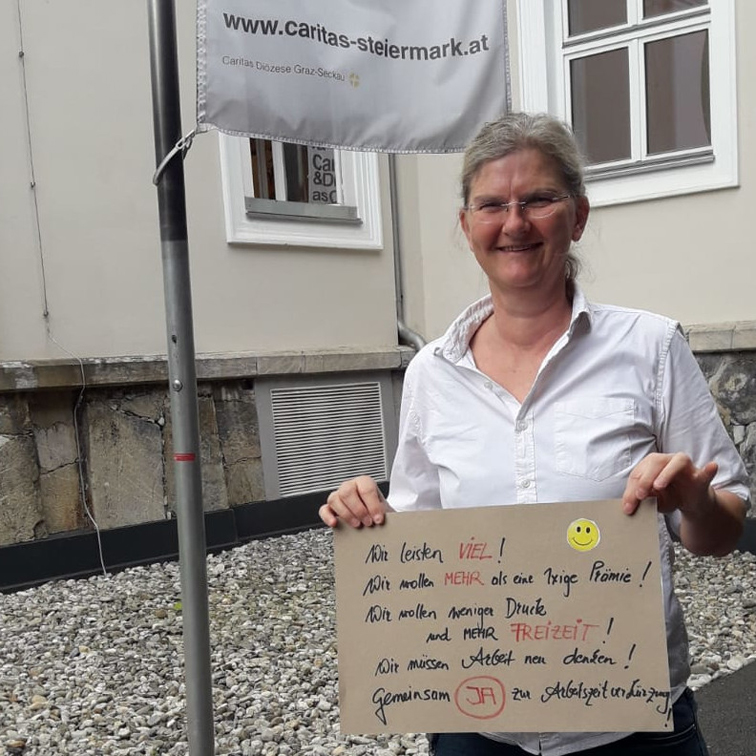 www.caritas-steiermark.at
Caritas Diözese Graz-Seckau
Car
&D
as C
Wir leisten VIEL!
Wir wollen MEHR als eine 1xige Prämie!
Wir wollen weniger Druck
und MEHR FREIZEIT!
Wir müssen Arbeit neu denken!
Gemeinsam JA zur Arbeitszeitverkürzung!